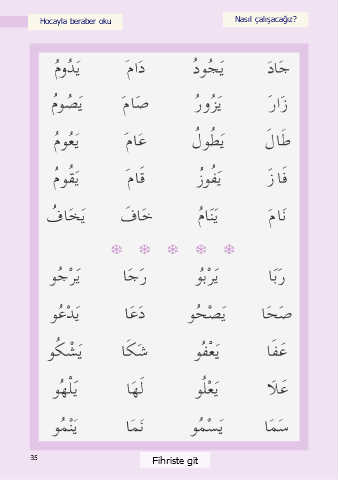 Hocayla beraber oku
Nasıl çalışacağız?
جَادَ يَجُودُ دَامَ يَدُومُ
زَارَ يَزُورُ صَامَ يَصُومُ
طَالَ يَطُولُ عَامَ يَعُومُ
فَازَ يَفُوزُ قَامَ يَقُومُ
نَامَ يَنَامُ خَافَ يَخَافُ
رَبَا يَرْبُو رَجَا يَرْجُو
صَحَا يَصْحُو دَعَا يَدْعُو
عَفَا يَعْفُو شَكَا يَشْكُو
عَلَا يَعْلُو لَهَا يَلْهُو
سَمَا يَسْمُو نَمَا يَنْمُو
35
Fihriste git